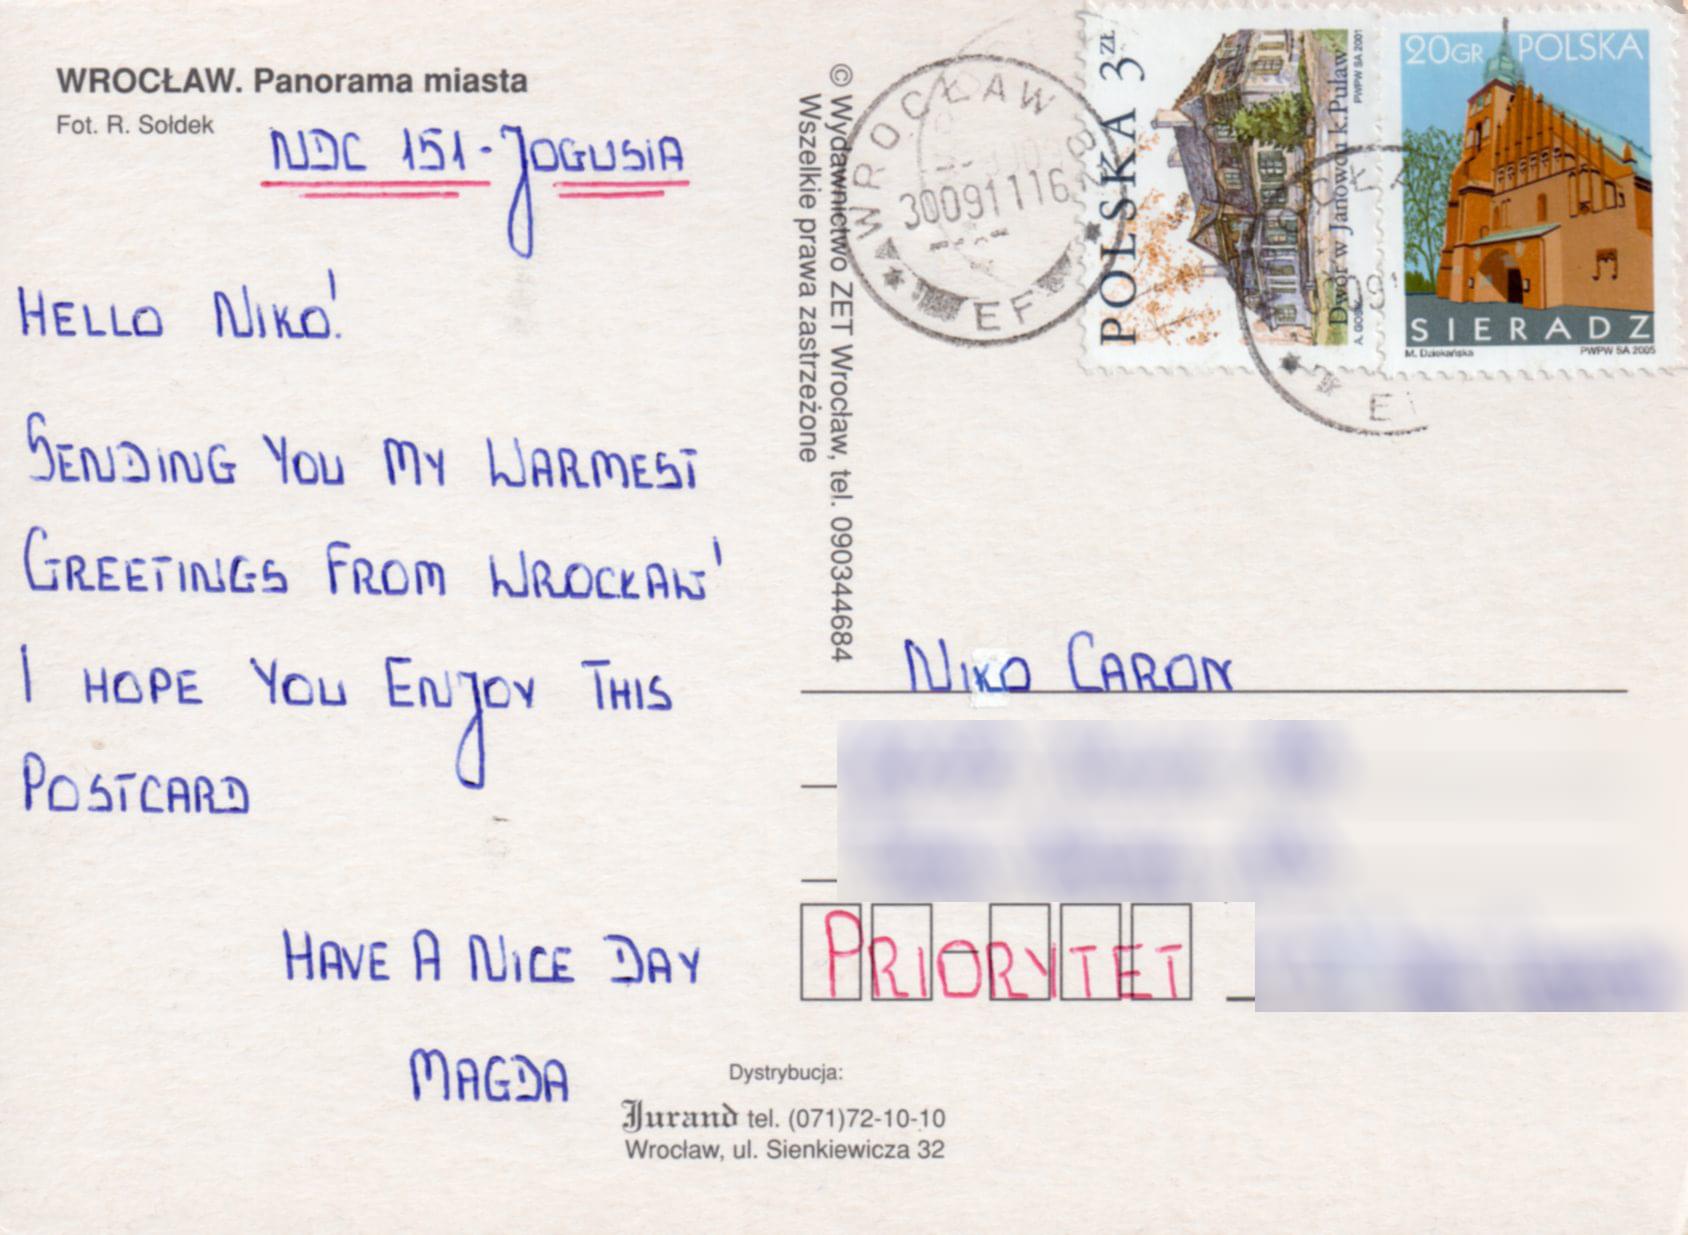 WROCŁAW. Panorama miasta
Fot. R. Sołdek
NDC 151-JOGUSIA
HELLO NIKO!
SENDING YOU MY WARMEST
GREETINGS FROM WROCŁAW!
I HOPE YOU ENJOY THIS
POSTCARD
HAVE A NICE DAY
MAGDA
© Wydawnictwo ZET Wrocław, tel. 090344684
Wszelkie prawa zastrzeżone
WROCŁAW
30091116
EF
POLSKA 3 ZŁ
Dwór w Janowcu k. Puław
PWPW SA 2001
20GR POLSKA
SIERADZ
M. Dziekańska
PWPW SA 2005
NIKO CARON
PRIORYTET
Dystrybucja:
Jurand tel. (071)72-10-10
Wrocław, ul. Sienkiewicza 32